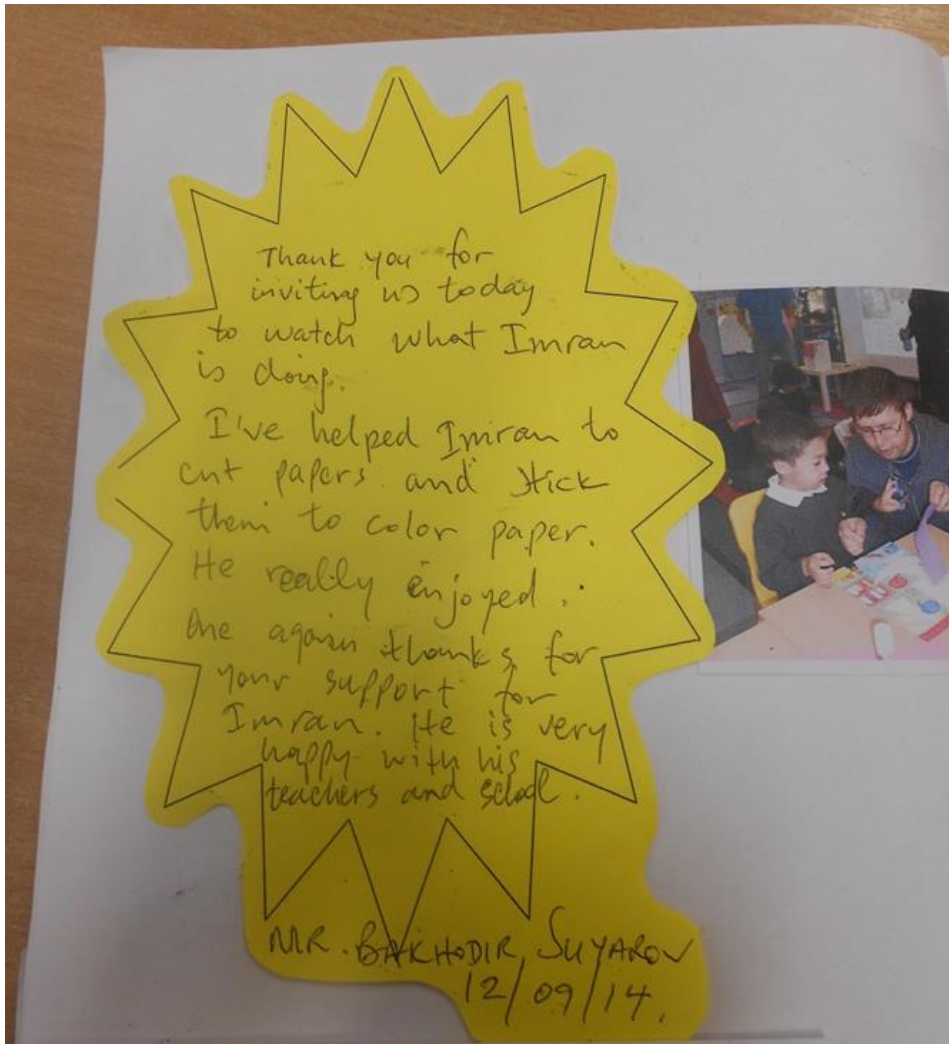 Thank you for
inviting us today
to watch what Imran
is doing.
I've helped Imran to
cut papers. and stick
them to color paper.
He really enjoyed.
One again thanks for
your support for
Imran. He is very
happy with his
teachers and school.
MR. BAKHODIR SUYAROV
12/09/14.